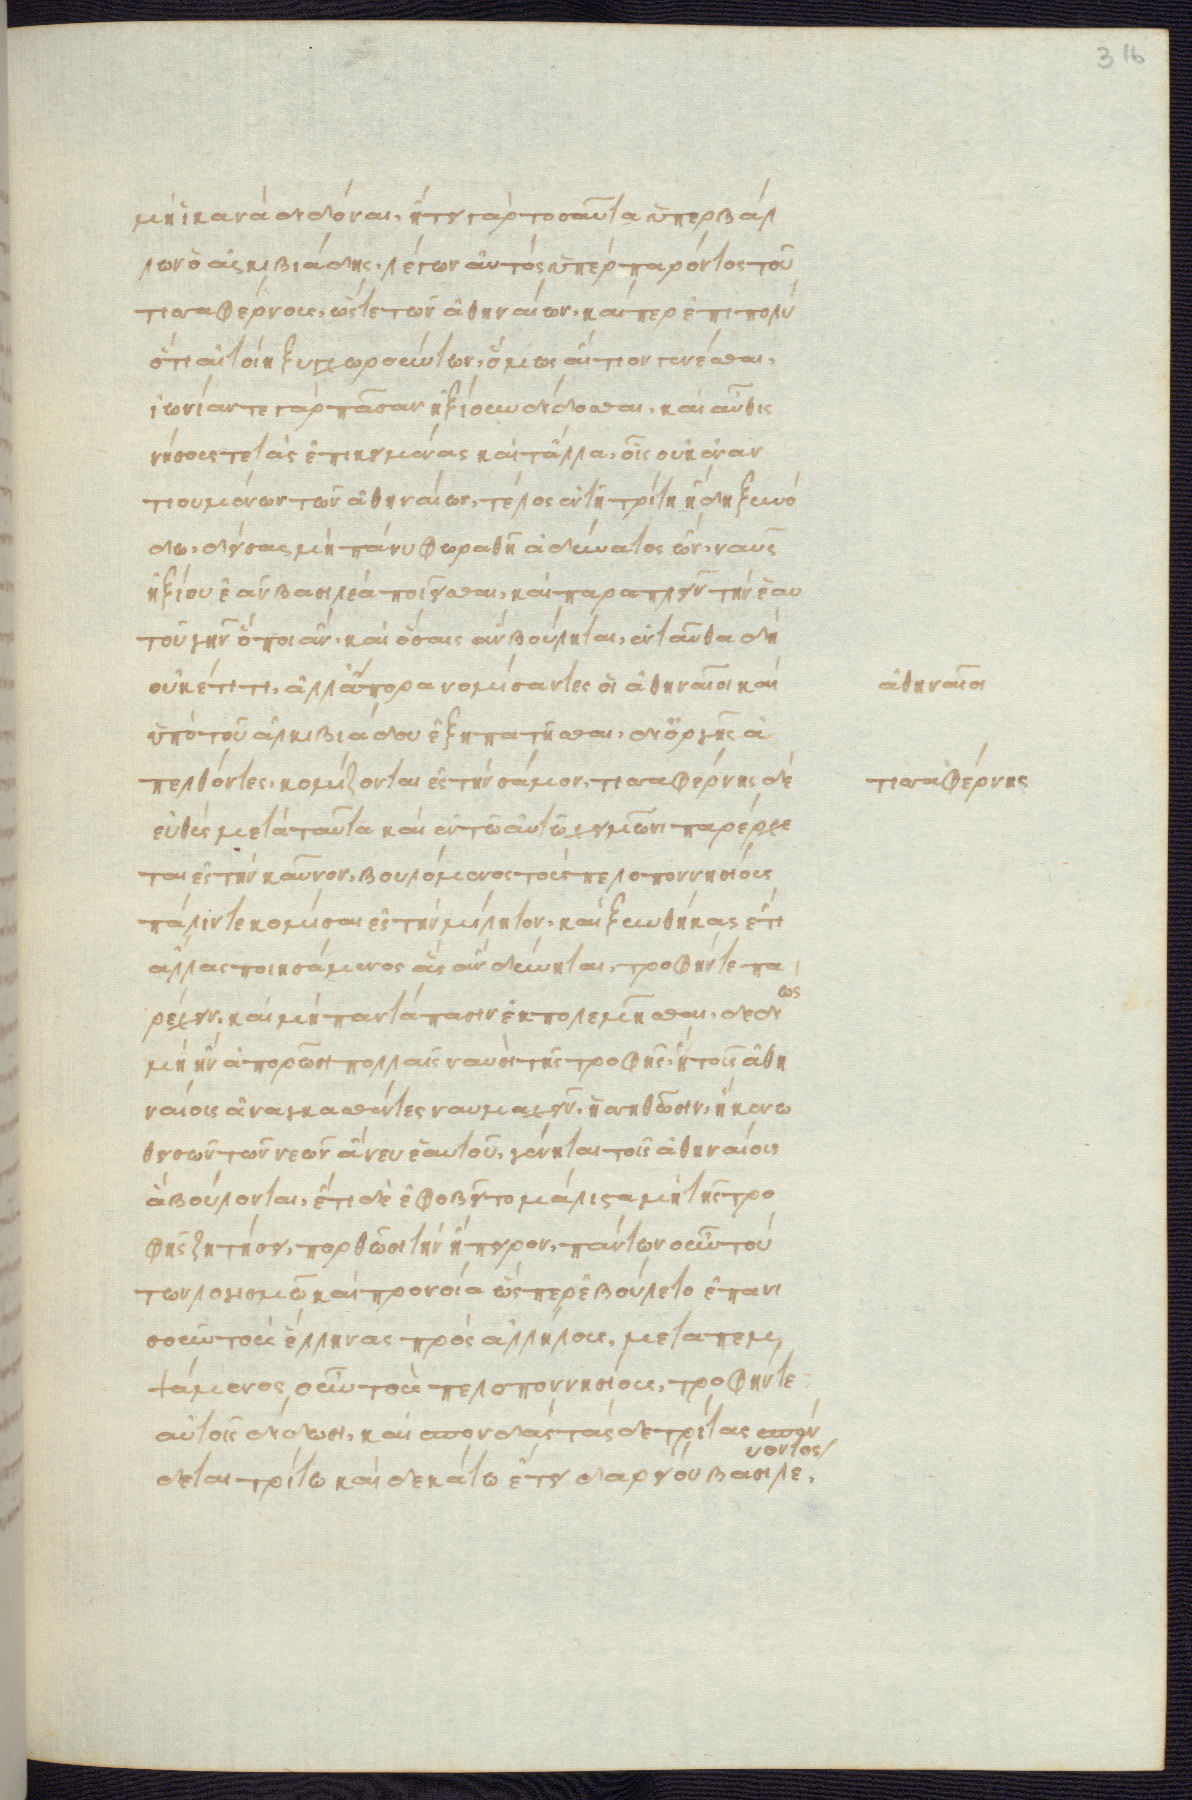 316
μὴ ἱκανὰ διδόναι, ἤτει γὰρ τοσαῦτα ὑπερβάλ
λων ὁ ἀλκιβιάδης, λέγων αὐτὸς ὑπὲρ παρόντος τοῦ
τισσαφέρνους, ὥστε τῶν ἀθηναίων, καίπερ ἐπιπολὺ
ὅτι αἰτοίη ξυγχωρούντων, ὅμως αἴτιον γενέσθαι,
ἰωνίαν τε γὰρ πᾶσαν ἠξίουν δίδοσθαι, καὶ αὖθις
νήσους τε τὰς ἐπικειμένας καὶ τἄλλα, οἷς οὐκ ἐναν
τιουμένων τῶν ἀθηναίων, τέλος ἐν τῇ τρίτῃ ἤδη ξυνό
δω, δείσας μὴ πάνυ φωραθῇ ἀδύνατος ὤν, ναῦς
ἠξίου ἐᾶν βασιλέα ποιεῖσθαι, καὶ παραπλεῖν τὴν ἑαυ
τοῦ γῆν ὅποι ἂν, καὶ ὅσαις ἂν βούληται, ἐνταῦθα δὴ
οὐκέτι τι, ἀλλ' ἄπορα νομίσαντες οἱ ἀθηναῖοι καὶ
ἀθηναῖοι
ὑπὸ τοῦ ἀλκιβιάδου ἐξηπατῆσθαι, δι' ὀργῆς ἀ
πελθόντες, κομίζονται ἐς τὴν σάμον, τισσαφέρνης δὲ
τισσαφέρνης
εὐθὺς μετὰ ταῦτα καὶ ἐν τῶ αὐτῶ χειμῶνι παρέρχε
ται ἐς τὴν καῦνον, βουλόμενος τοὺς πελοποννησίους
πάλιν τε κομίσαι ἐς τὴν μίλητον, καὶ ξυνθήκας ἔτι
ἄλλας ποιησάμενος ἃς ἂν δύνηται, τροφήν τε πα
ρέχειν, καὶ μὴ παντάπασιν ἐκπολεμῆσθαι, δεδιὼς
μὴ ἢν ἀπορῶσι πολλαῖς ναυσὶ τῆς τροφῆς, ἢ τοῖς ἀθη
ναίοις ἀναγκασθέντες ναυμαχεῖν, ἡσσηθῶσιν, ἢ κενω
θεισῶν τῶν νεῶν ἄνευ ἑαυτοῦ, γένηται τοῖς ἀθηναίοις
ἃ βούλονται, ἔτι δὲ ἐφοβεῖτο μάλιστα μὴ τῆς τρο
φῆς ζητήσει, πορθῶσι τὴν ἤπειρον, πάντων οὖν τού
των λογισμῶ καὶ προνοία ὥσπερ ἐβούλετο ἐπανι
σοῦν τοὺς ἕλληνας πρὸς ἀλλήλους, μεταπεμ
ψάμενος οὖν τοὺς πελοποννησίους, τροφήν τε
αὐτοῖς δίδωσι, καὶ σπονδὰς τὰς δὲ τρίτας σπέν
δεται τρίτω καὶ δεκάτω ἔτει δαρείου βασιλεύοντος,